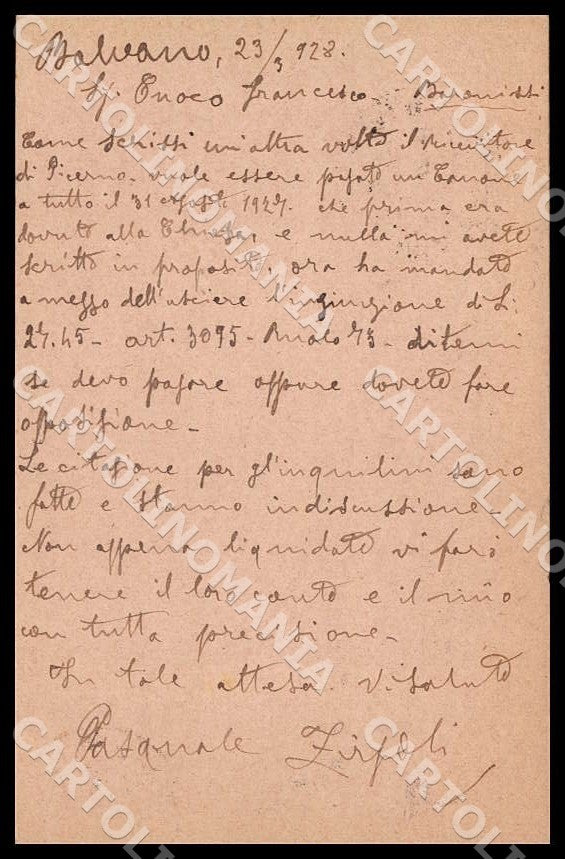 Balvano, 23/3 928.
Sig. Cuoco Francesco - Baronissi
Come scrissi un'altra volta il ricevitore
di Picerno vuole essere pagato un Canone
a tutto il 31 agosto 1927. che prima era
dovuto alla Chiesa, e nulla mi avete
scritto in proposito. ora ha mandato
a mezzo dell'usciere l'ingiunzione di L:
27.45 - art. 3095 - Ruolo 73 - ditemi
se devo pagare oppure dovete fare
opposizione -
Le citazione per gl'inquilini sono
fatte e stanno in discussione -
Non appena liquidate vi farò
tenere il loro conto e il mio
con tutta precisione -
In tale attesa vi saluto
Pasquale Zirpoli
CARTOLINOMANIA